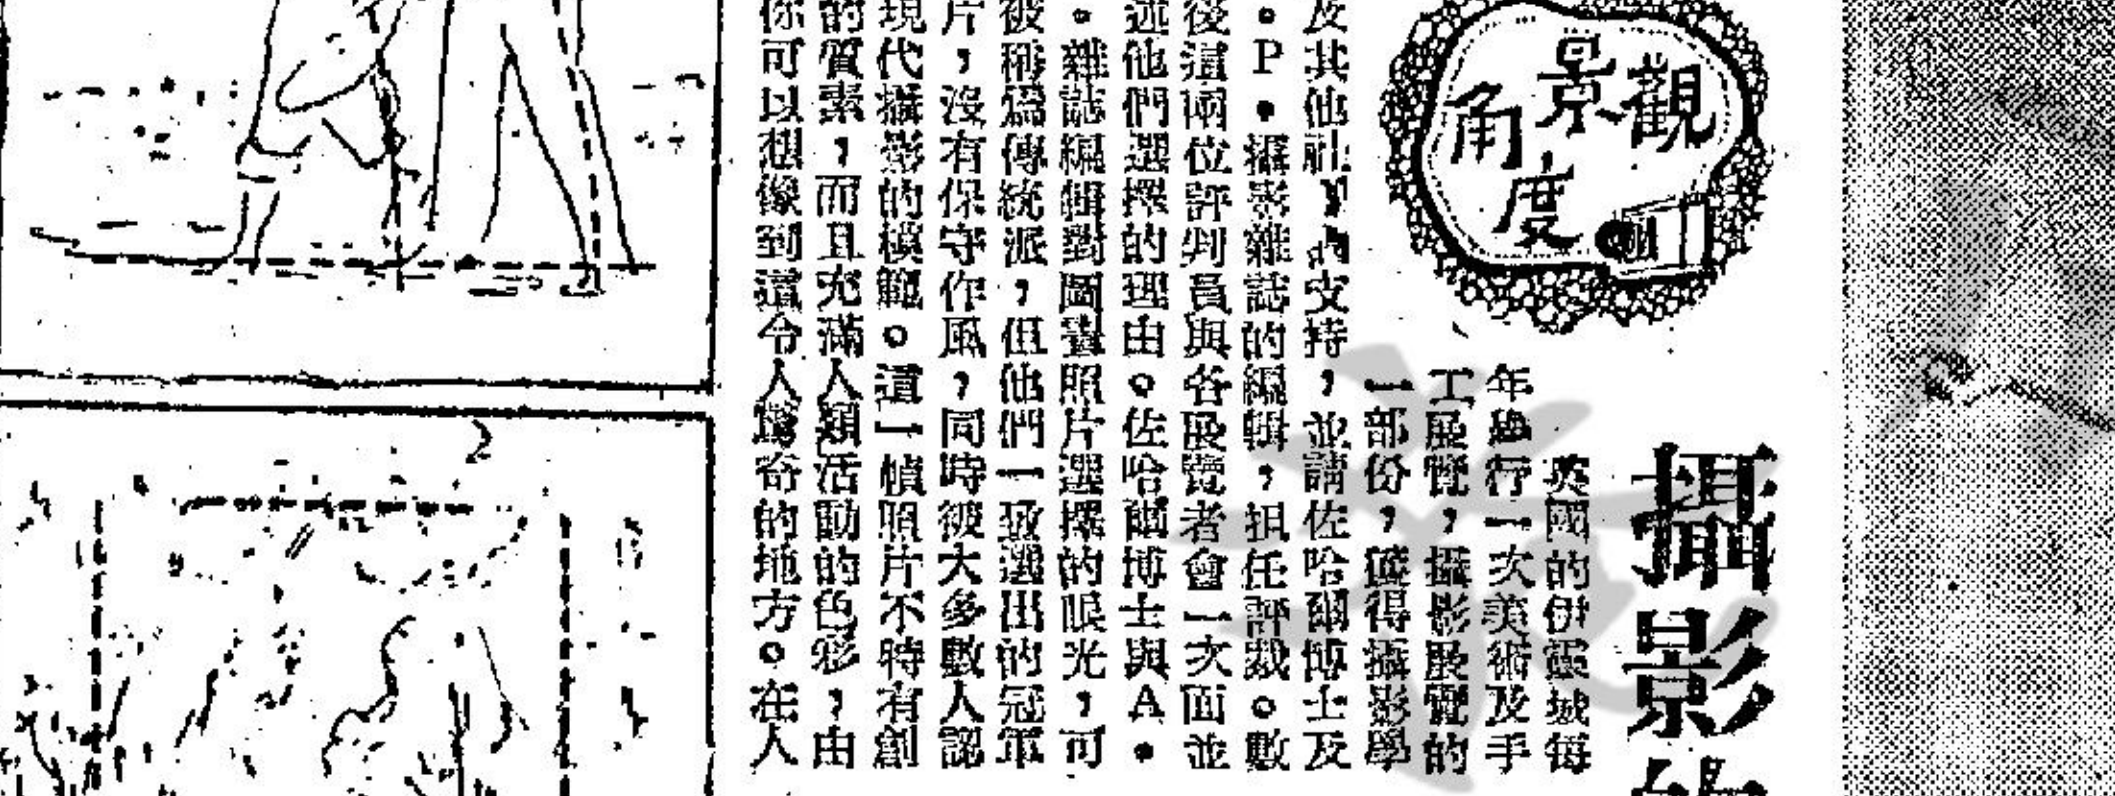 觀景角度
攝影的
英國的伊靈城每
年舉行一次美術及手
工展覽，攝影展覽的
一部份，獲得攝影學
及其他社團支持，並請佐哈爾博士及
。P．攝影雜誌的編輯，担任評裁。數
後這兩位評判員與各展覽者會一次面並
述他們選擇的理由。佐哈爾博士與A．
。雜誌編輯對圖畫照片選擇的眼光，可
被稱為傳統派，但他們一致選出的冠軍
片，沒有保守作風，同時被大多數人認
現代攝影的模範。這一幀照片不特有創
的質素，而且充滿人類活動的色彩，由
你可以想像到這令人驚奇的地方。在人
2